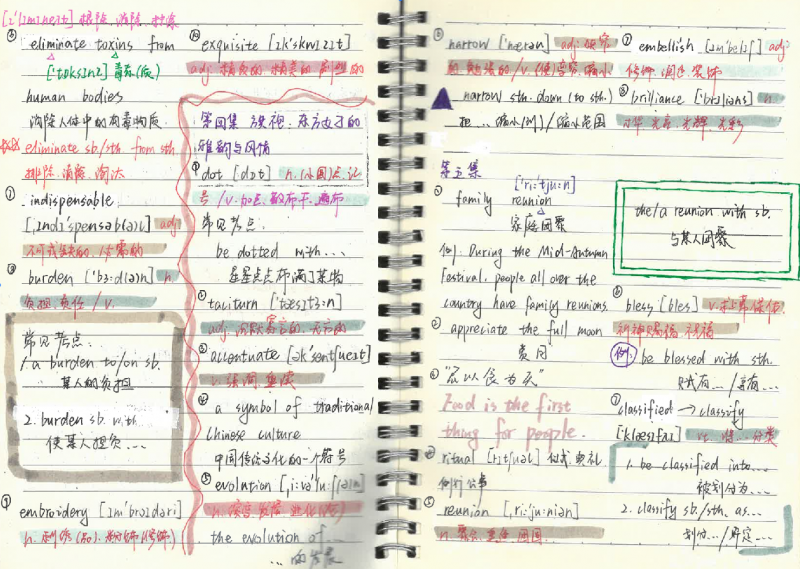 [ɪ'lɪmɪneɪt] 根除, 消除
⑥ eliminate toxins from
['tɒksɪnz] 毒素(质)
human bodies
消除人体中的有毒物质
eliminate sb/sth. from sth.
排除、消除、淘汰
① indispensable
[ˌɪndɪ'spensəb(ə)l] adj
不可或缺的、必需的
② burden ['bɜ:d(ə)n] n
负担、责任 / v.
常见考点:
1. a burden to/on sb.
某人的负担
2. burden sb. with
使某人担负...
⑨ embroidery [ɪm'brɔɪdəri]
n. 刺绣(品)
⑩ exquisite [ɪk'skwɪzɪt]
adj. 精致的、精美的
第四集
雅韵与风情
① dot [dɒt] n. (小圆)点
/ v. 加点、散布于、遍布
常见考点:
be dotted with...
星星点点布满了某物
① taciturn ['tæsɪtɜ:n]
adj. 沉默寡言的
② accentuate [ək'sentʃueɪt]
v. 强调
④ a symbol of traditional
Chinese culture
中国传统文化的一个符号
⑤ evolution [ˌi:və'lu:ʃ(ə)n]
the evolution of...
...的发展
⑥ narrow ['nærəʊ] adj. 狭窄
的 勉强的 / v. (使)变窄、缩小
narrow sth. down (to sth.)
把...缩小(到) / 缩小范围
⑦ embellish [ɪm'belɪʃ]
修饰、润色、装饰
⑧ brilliance ['brɪliəns] n.
才华 光彩 光辉
第五集
['ri:'tju:n]
① family reunion
家庭团聚
例: During the Mid-Autumn
Festival, people all over the
country have family reunions.
② appreciate the full moon
赏月
③ “民以食为天”
Food is the first
thing for people.
④ ritual [rɪtʃuəl] 仪式、典礼
例行公事
⑤ reunion [ˌri:'ju:niən]
n 聚会、重逢、团圆
the/a reunion with sb.
与某人团聚
⑥ bless [bles]
祈神赐福、祝福
例: be blessed with sth.
赋有... / 享有...
⑦ classified → classify
[klæsɪfaɪ] vt. 将...分类
1. be classified into...
被划分为...
2. classify sb./sth. as...
划为... / 界定...